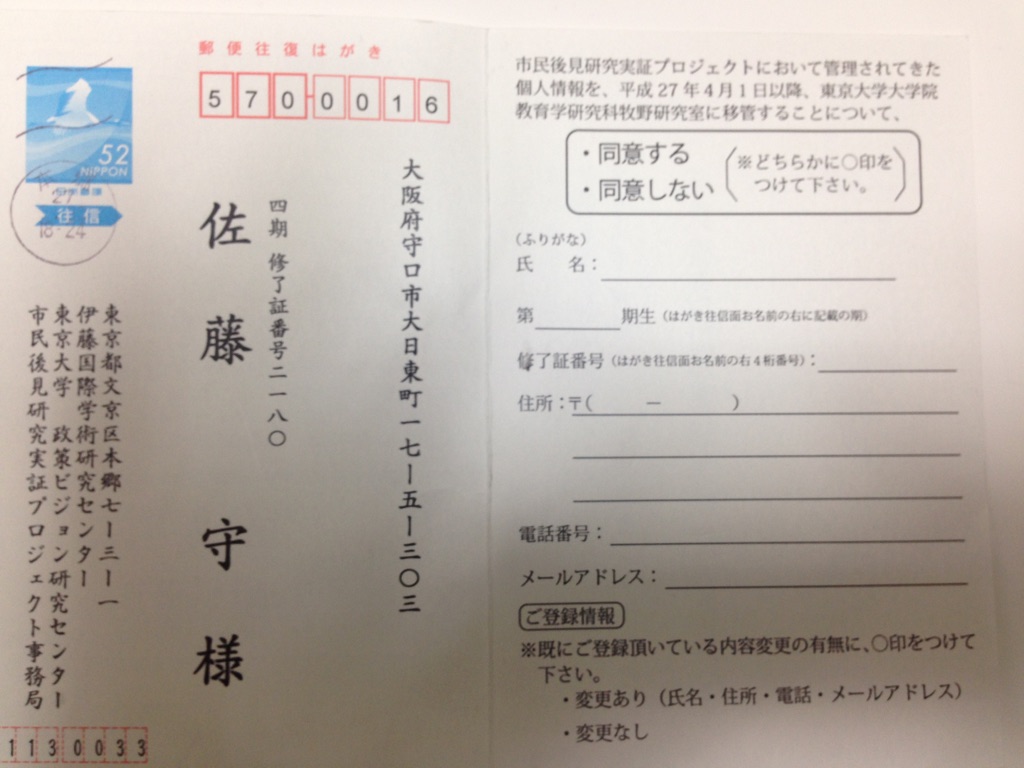 郵便往復はがき
5700016
52
NIPPON
日本郵便
往信
27
18-24
大阪府守口市大日東町一七ー五ー三〇三
四期 修了証番号二一八〇
佐藤守様
東京都文京区本郷七ー三ー一
伊藤国際学術研究センター
東京大学 政策ビジョン研究センター
市民後見研究実証プロジェクト事務局
1130033
市民後見研究実証プロジェクトにおいて管理されてきた
個人情報を、平成27年4月1日以降、東京大学大学院
教育学研究科牧野研究室に移管することについて、
・同意する
・同意しない
(※どちらかに〇印を
つけて下さい。)
(ふりがな)
氏 名:
第 期生(はがき往信面お名前の右に記載の期)
修了証番号(はがき往信面お名前の右4桁番号):
住所:〒( ー )
電話番号:
メールアドレス:
ご登録情報
※既にご登録頂いている内容変更の有無に、〇印をつけて
下さい。
・変更あり(氏名・住所・電話・メールアドレス)
・変更なし